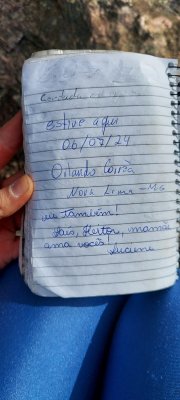 estive aqui
06/07/24
Orlando Corrêa
Nova Lima - MG
também!
Laís, Heitor, mamãe
ama vocês!
Luciene